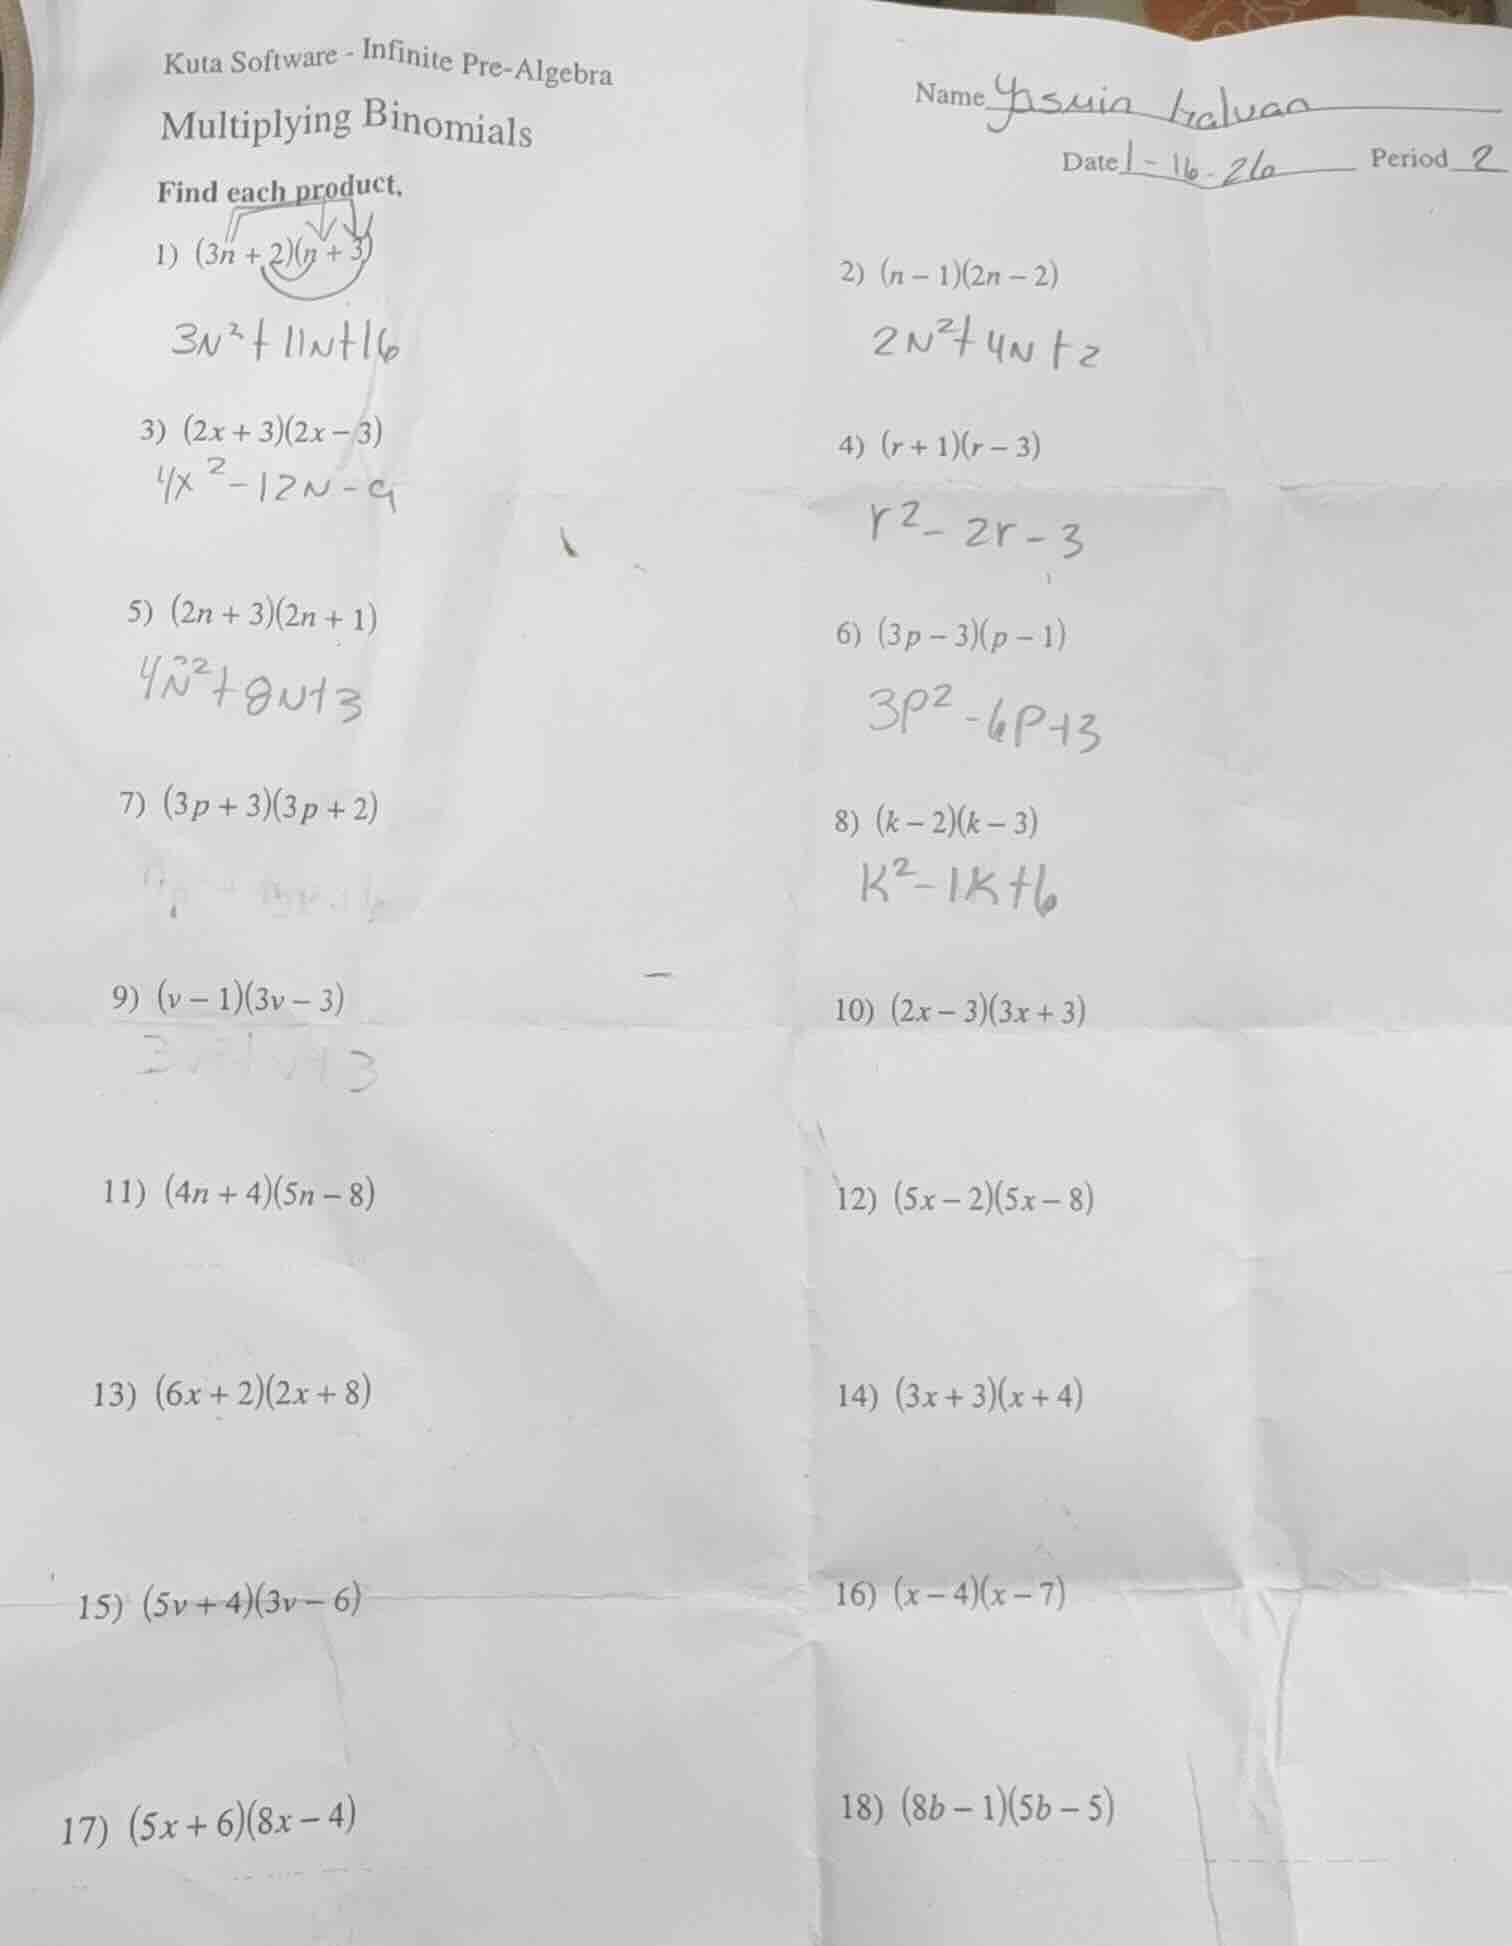 Kuta Software - Infinite Pre-Algebra
Name
Multiplying Binomials
Date 1-16-26 Period 2
Find each product.
1) (3n + 2)(n + 3)
2) (n − 1)(2n − 2)
3N² + 11N + 16
2N² + 4N + 2
3) (2x + 3)(2x − 3)
4) (r + 1)(r − 3)
4x² - 12N - 9
r² - 2r - 3
5) (2n + 3)(2n + 1)
6) (3p − 3)(p − 1)
4N² + 8N + 3
3P² - 6P + 3
7) (3p + 3)(3p + 2)
8) (k − 2)(k − 3)
K² - 1K + 6
9) (v − 1)(3v − 3)
10) (2x − 3)(3x + 3)
11) (4n + 4)(5n − 8)
12) (5x − 2)(5x − 8)
13) (6x + 2)(2x + 8)
14) (3x + 3)(x + 4)
15) (5v + 4)(3v − 6)
16) (x − 4)(x − 7)
17) (5x + 6)(8x − 4)
18) (8b − 1)(5b − 5)